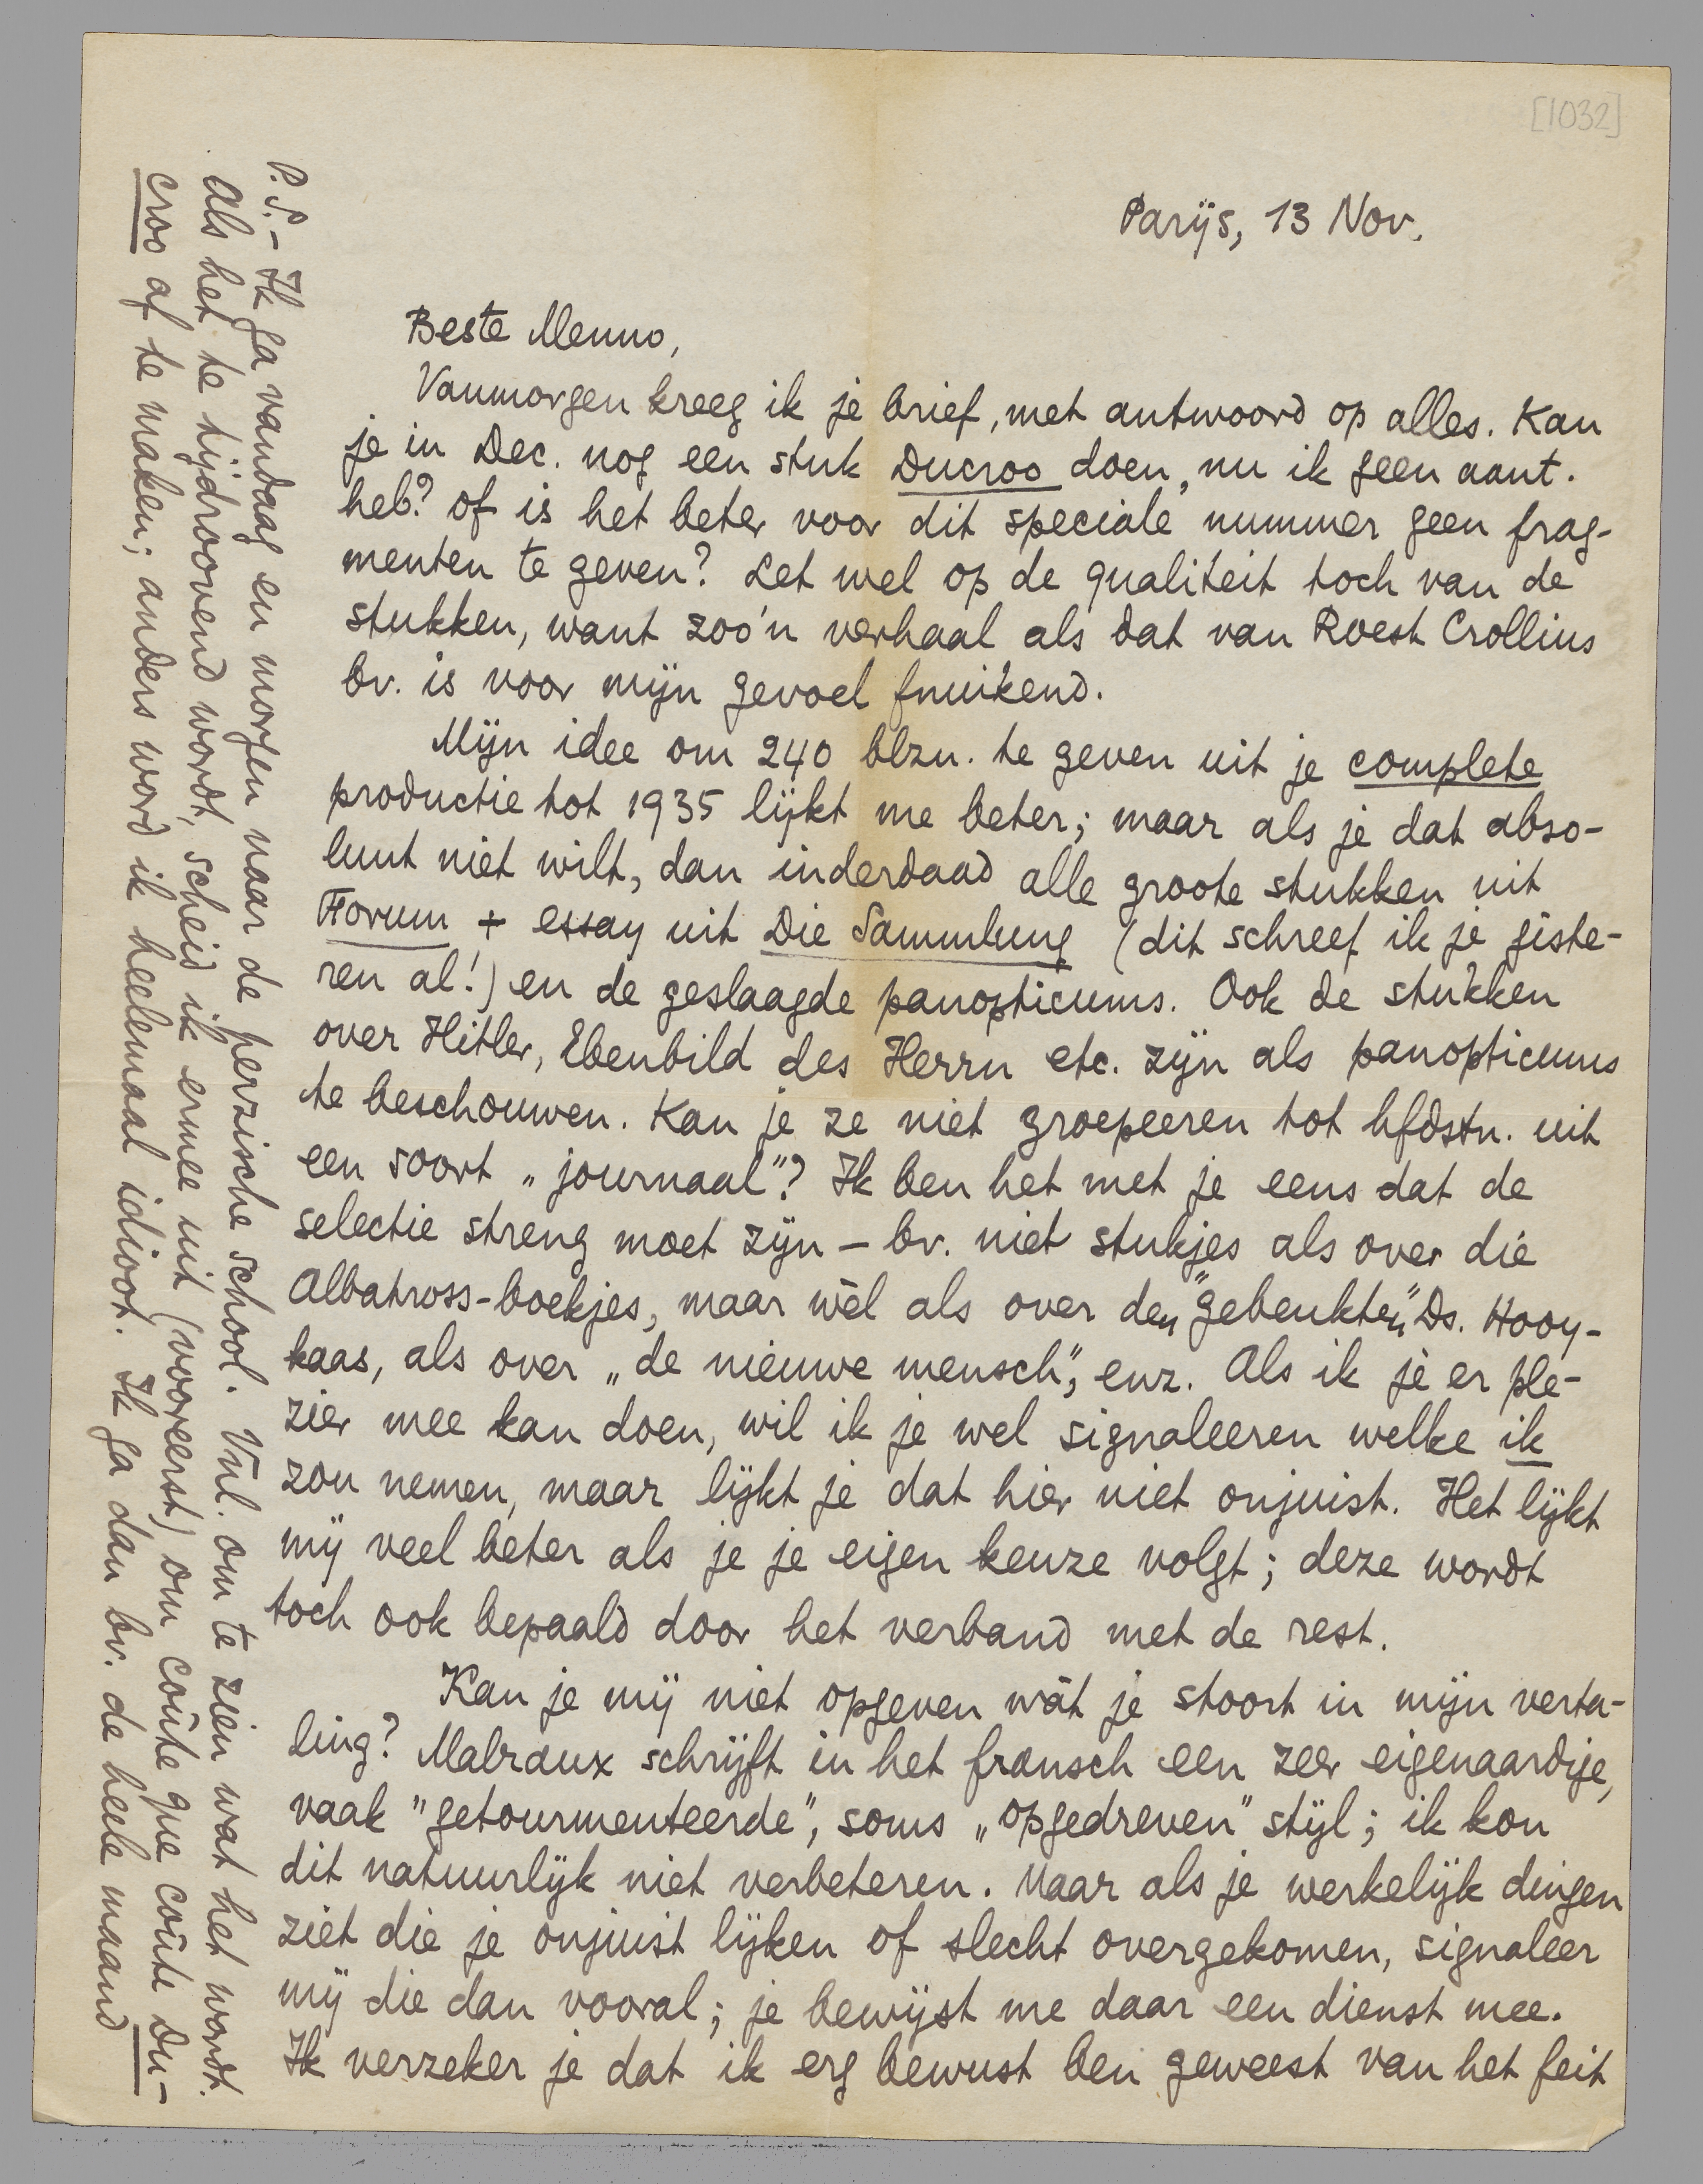 [1032]
Parijs, 13 Nov.
Beste Menno,
Vanmorgen kreeg ik je brief, met antwoord op alles. Kan
je in Dec. nog een stuk Ducroo doen, nu ik geen aant.
heb? of is het beter voor dit speciale nummer geen frag-
menten te geven? Let wel op de qualiteit toch van de
stukken, want zoo'n verhaal als dat van Roest Crollius
bv. is voor mijn gevoel fnuikend.
Mijn idee om 240 blzn. te geven uit je complete
productie tot 1935 lijkt me beter; maar als je dat abso-
luut niet wilt, dan inderdaad alle groote stukken uit
Forum + essay uit Die Sammlung (dit schreef ik je giste-
ren al!) en de geslaagde panopticums. Ook de stukken
over Hitler, Ebenbild des Herrn etc. zijn als panopticums
te beschouwen. Kan je ze niet groepeeren tot hfdstn. uit
een soort „journaal"? Ik ben het met je eens dat de
selectie streng moet zijn — bv. niet stukjes als over die
Albatross-boekjes, maar wèl als over den „gebeukten" Ds. Hooy-
kaas, als over „de nieuwe mensch", enz. Als ik je er ple-
zier mee kan doen, wil ik je wel signaleeren welke ik
zou nemen, maar lijkt je dat hier niet onjuist. Het lijkt
mij veel beter als je je eigen keuze volgt; deze wordt
toch ook bepaald door het verband met de rest.
Kan je mij niet opgeven wàt je stoort in mijn verta-
ling? Malraux schrijft in het fransch een zeer eigenaardige,
vaak "getourmenteerde", soms „opgedreven" stijl; ik kon
dit natuurlijk niet verbeteren. Maar als je werkelijk dingen
ziet die je onjuist lijken of slecht overgekomen, signaleer
mij die dan vooral; je bewijst me daar een dienst mee.
Ik verzeker je dat ik erg bewust ben geweest van het feit
P.S. — Ik ga vandaag en morgen naar de perzische school. Vnl. om te zien wat het wordt.
Als het te tijdroovend wordt, scheid ik ermee uit (vooreerst) om coûte que coûte Du-
croo af te maken; anders word ik heelemaal idioot. Ik ga dan bv. de heele maand